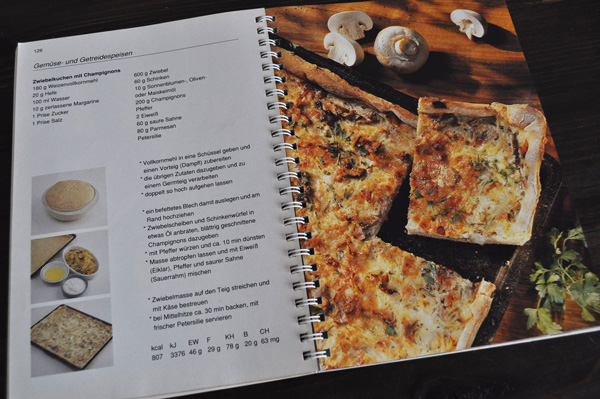 126
Gemüse- und Getreidespeisen
Zwiebelkuchen mit Champignons
180 g Weizenvollkornmehl
20 g Hefe
100 ml Wasser
10 g zerlassene Margarine
1 Prise Zucker
1 Prise Salz
600 g Zwiebel
80 g Schinken
10 g Sonnenblumen-, Oliven-
oder Maiskeimöl
200 g Champignons
Pfeffer
2 Eiweiß
60 g saure Sahne
80 g Parmesan
Petersilie
* Vollkornmehl in eine Schüssel geben und
einen Vorteig (Dampfl) zubereiten
* die übrigen Zutaten dazugeben und zu
einem Germteig verarbeiten
* doppelt so hoch aufgehen lassen
* ein befettetes Blech damit auslegen und am
Rand hochziehen
* Zwiebelscheiben und Schinkenwürfel in
etwas Öl anbraten, blättrig geschnittene
Champignons dazugeben
* mit Pfeffer würzen und ca. 10 min dünsten
* Masse abtropfen lassen und mit Eiweiß
(Eiklar), Pfeffer und saurer Sahne
(Sauerrahm) mischen
* Zwiebelmasse auf den Teig streichen und
mit Käse bestreuen
* bei Mittelhitze ca. 30 min backen, mit
frischer Petersilie servieren
kcal kJ EW F KH B CH
807 3376 46 g 29 g 78 g 20 g 63 mg